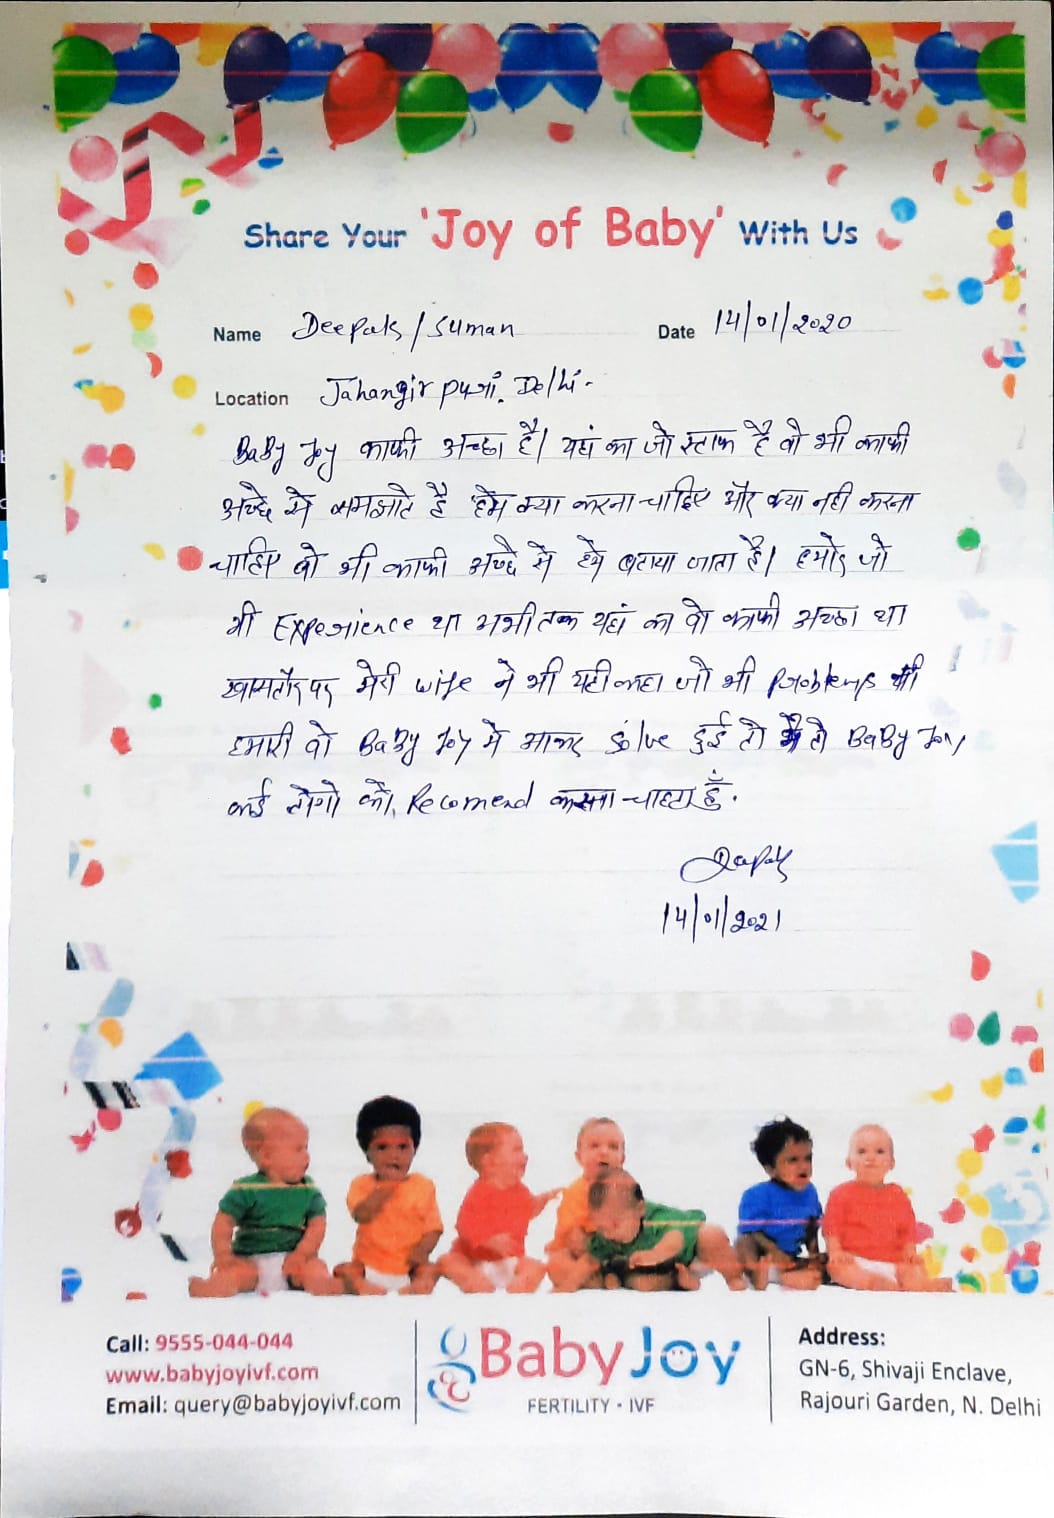 Share Your 'Joy of Baby' With Us
Name Deepak/Suman Date 14/01/2020
Location Jahangir puri. Delhi.
BaBy Joy काफी अच्छा है। यहां का जो स्टाफ है वो भी काफी
अच्छे से समझाते है हमे क्या करना चाहिए और क्या नही करना
चाहिए वो भी काफी अच्छे से हमे बताया जाता है। हमारे जो
भी Experience था अभी तक यहां का वो काफी अच्छा था
खासतौर पर मेरी wife ने भी यही कहा जो भी Problems थी
हमारी वो BaBy Joy मे आकर solve हुई तो मै तो BaBy Joy
कई लोगो को Recomend करना चाहता हुँ.
Deepak
14/01/2021
Call: 9555-044-044
www.babyjoyivf.com
Email: query@babyjoyivf.com
Baby Joy
FERTILITY • IVF
Address:
GN-6, Shivaji Enclave,
Rajouri Garden, N. Delhi